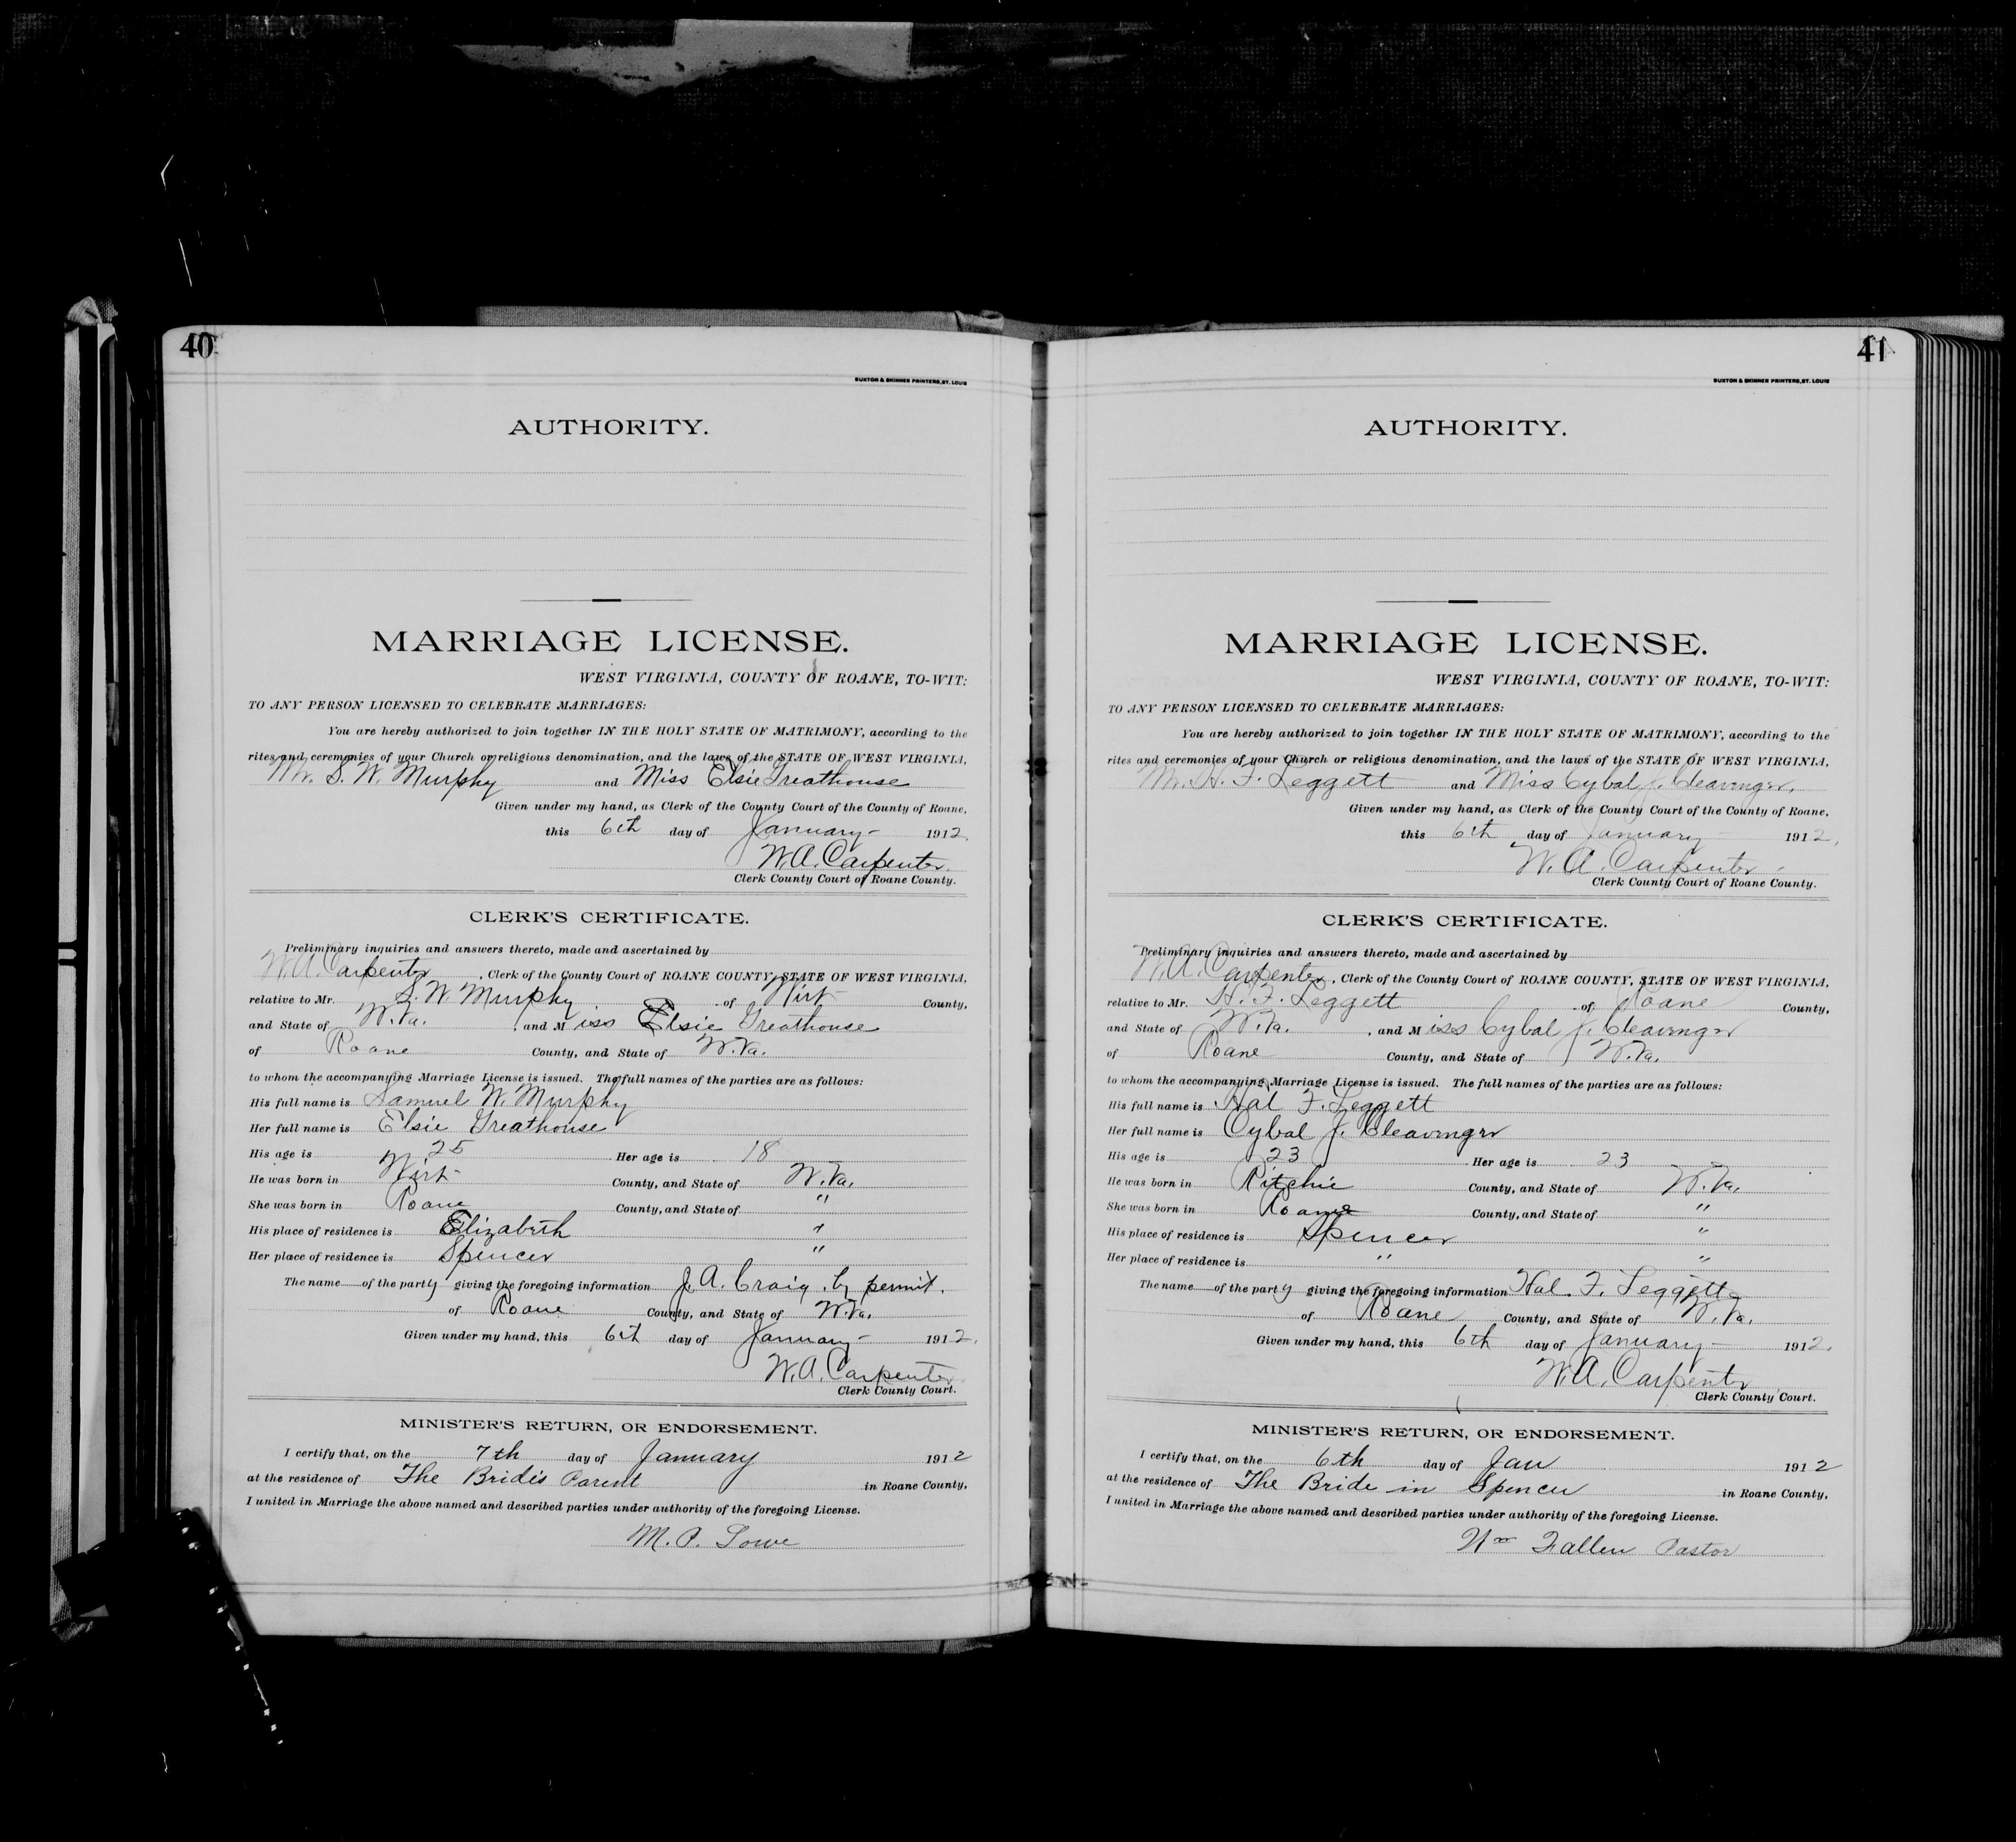 40
BUXTON & SKINNER PRINTERS, ST. LOUIS
AUTHORITY.
MARRIAGE LICENSE.
WEST VIRGINIA, COUNTY OF ROANE, TO-WIT:
TO ANY PERSON LICENSED TO CELEBRATE MARRIAGES:
You are hereby authorized to join together IN THE HOLY STATE OF MATRIMONY, according to the
rites and ceremonies of your Church or religious denomination, and the laws of the STATE OF WEST VIRGINIA,
Mr. S. W. Murphy and Miss Elsie Greathouse
Given under my hand, as Clerk of the County Court of the County of Roane,
this 6th day of January 1912.
W. A. Carpenter.
Clerk County Court of Roane County.
CLERK'S CERTIFICATE.
Preliminary inquiries and answers thereto, made and ascertained by
W. A. Carpenter, Clerk of the County Court of ROANE COUNTY, STATE OF WEST VIRGINIA,
relative to Mr. S. W. Murphy of Wirt County,
and State of W. Va., and Miss Elsie Greathouse
of Roane County, and State of W. Va.
to whom the accompanying Marriage License is issued. The full names of the parties are as follows:
His full name is Samuel W. Murphy
Her full name is Elsie Greathouse
His age is 25 Her age is 18
He was born in Wirt County, and State of W. Va.
She was born in Roane County, and State of "
His place of residence is Elizabeth "
Her place of residence is Spencer "
The name of the party giving the foregoing information J. A. Craig. by permit.
of Roane County, and State of W. Va.
Given under my hand, this 6th day of January 1912.
W. A. Carpenter
Clerk County Court.
MINISTER'S RETURN, OR ENDORSEMENT.
I certify that, on the 7th day of January 1912
at the residence of The Bride's Parent in Roane County,
I united in Marriage the above named and described parties under authority of the foregoing License.
M. P. Lowe
41
BUXTON & SKINNER PRINTERS, ST. LOUIS
AUTHORITY.
MARRIAGE LICENSE.
WEST VIRGINIA, COUNTY OF ROANE, TO-WIT:
TO ANY PERSON LICENSED TO CELEBRATE MARRIAGES:
You are hereby authorized to join together IN THE HOLY STATE OF MATRIMONY, according to the
rites and ceremonies of your Church or religious denomination, and the laws of the STATE OF WEST VIRGINIA,
Mr. H. F. Leggett and Miss Cybal J. Cleavenger.
Given under my hand, as Clerk of the County Court of the County of Roane,
this 6th day of January 1912.
W. A. Carpenter
Clerk County Court of Roane County.
CLERK'S CERTIFICATE.
Preliminary inquiries and answers thereto, made and ascertained by
W. A. Carpenter, Clerk of the County Court of ROANE COUNTY, STATE OF WEST VIRGINIA,
relative to Mr. H. F. Leggett of Roane County,
and State of W. Va., and Miss Cybal J. Cleavenger
of Roane County, and State of W. Va.
to whom the accompanying Marriage License is issued. The full names of the parties are as follows:
His full name is Hal F. Leggett
Her full name is Cybal J. Cleavenger
His age is 23 Her age is 23
He was born in Ritchie County, and State of W. Va.
She was born in Roane County, and State of "
His place of residence is Spencer "
Her place of residence is " "
The name of the party giving the foregoing information Hal. F. Leggett
of Roane County, and State of W. Va.
Given under my hand, this 6th day of January 1912.
W. A. Carpenter
Clerk County Court.
MINISTER'S RETURN, OR ENDORSEMENT.
I certify that, on the 6th day of Jan 1912
at the residence of The Bride in Spencer in Roane County,
I united in Marriage the above named and described parties under authority of the foregoing License.
Wm Fallen Pastor